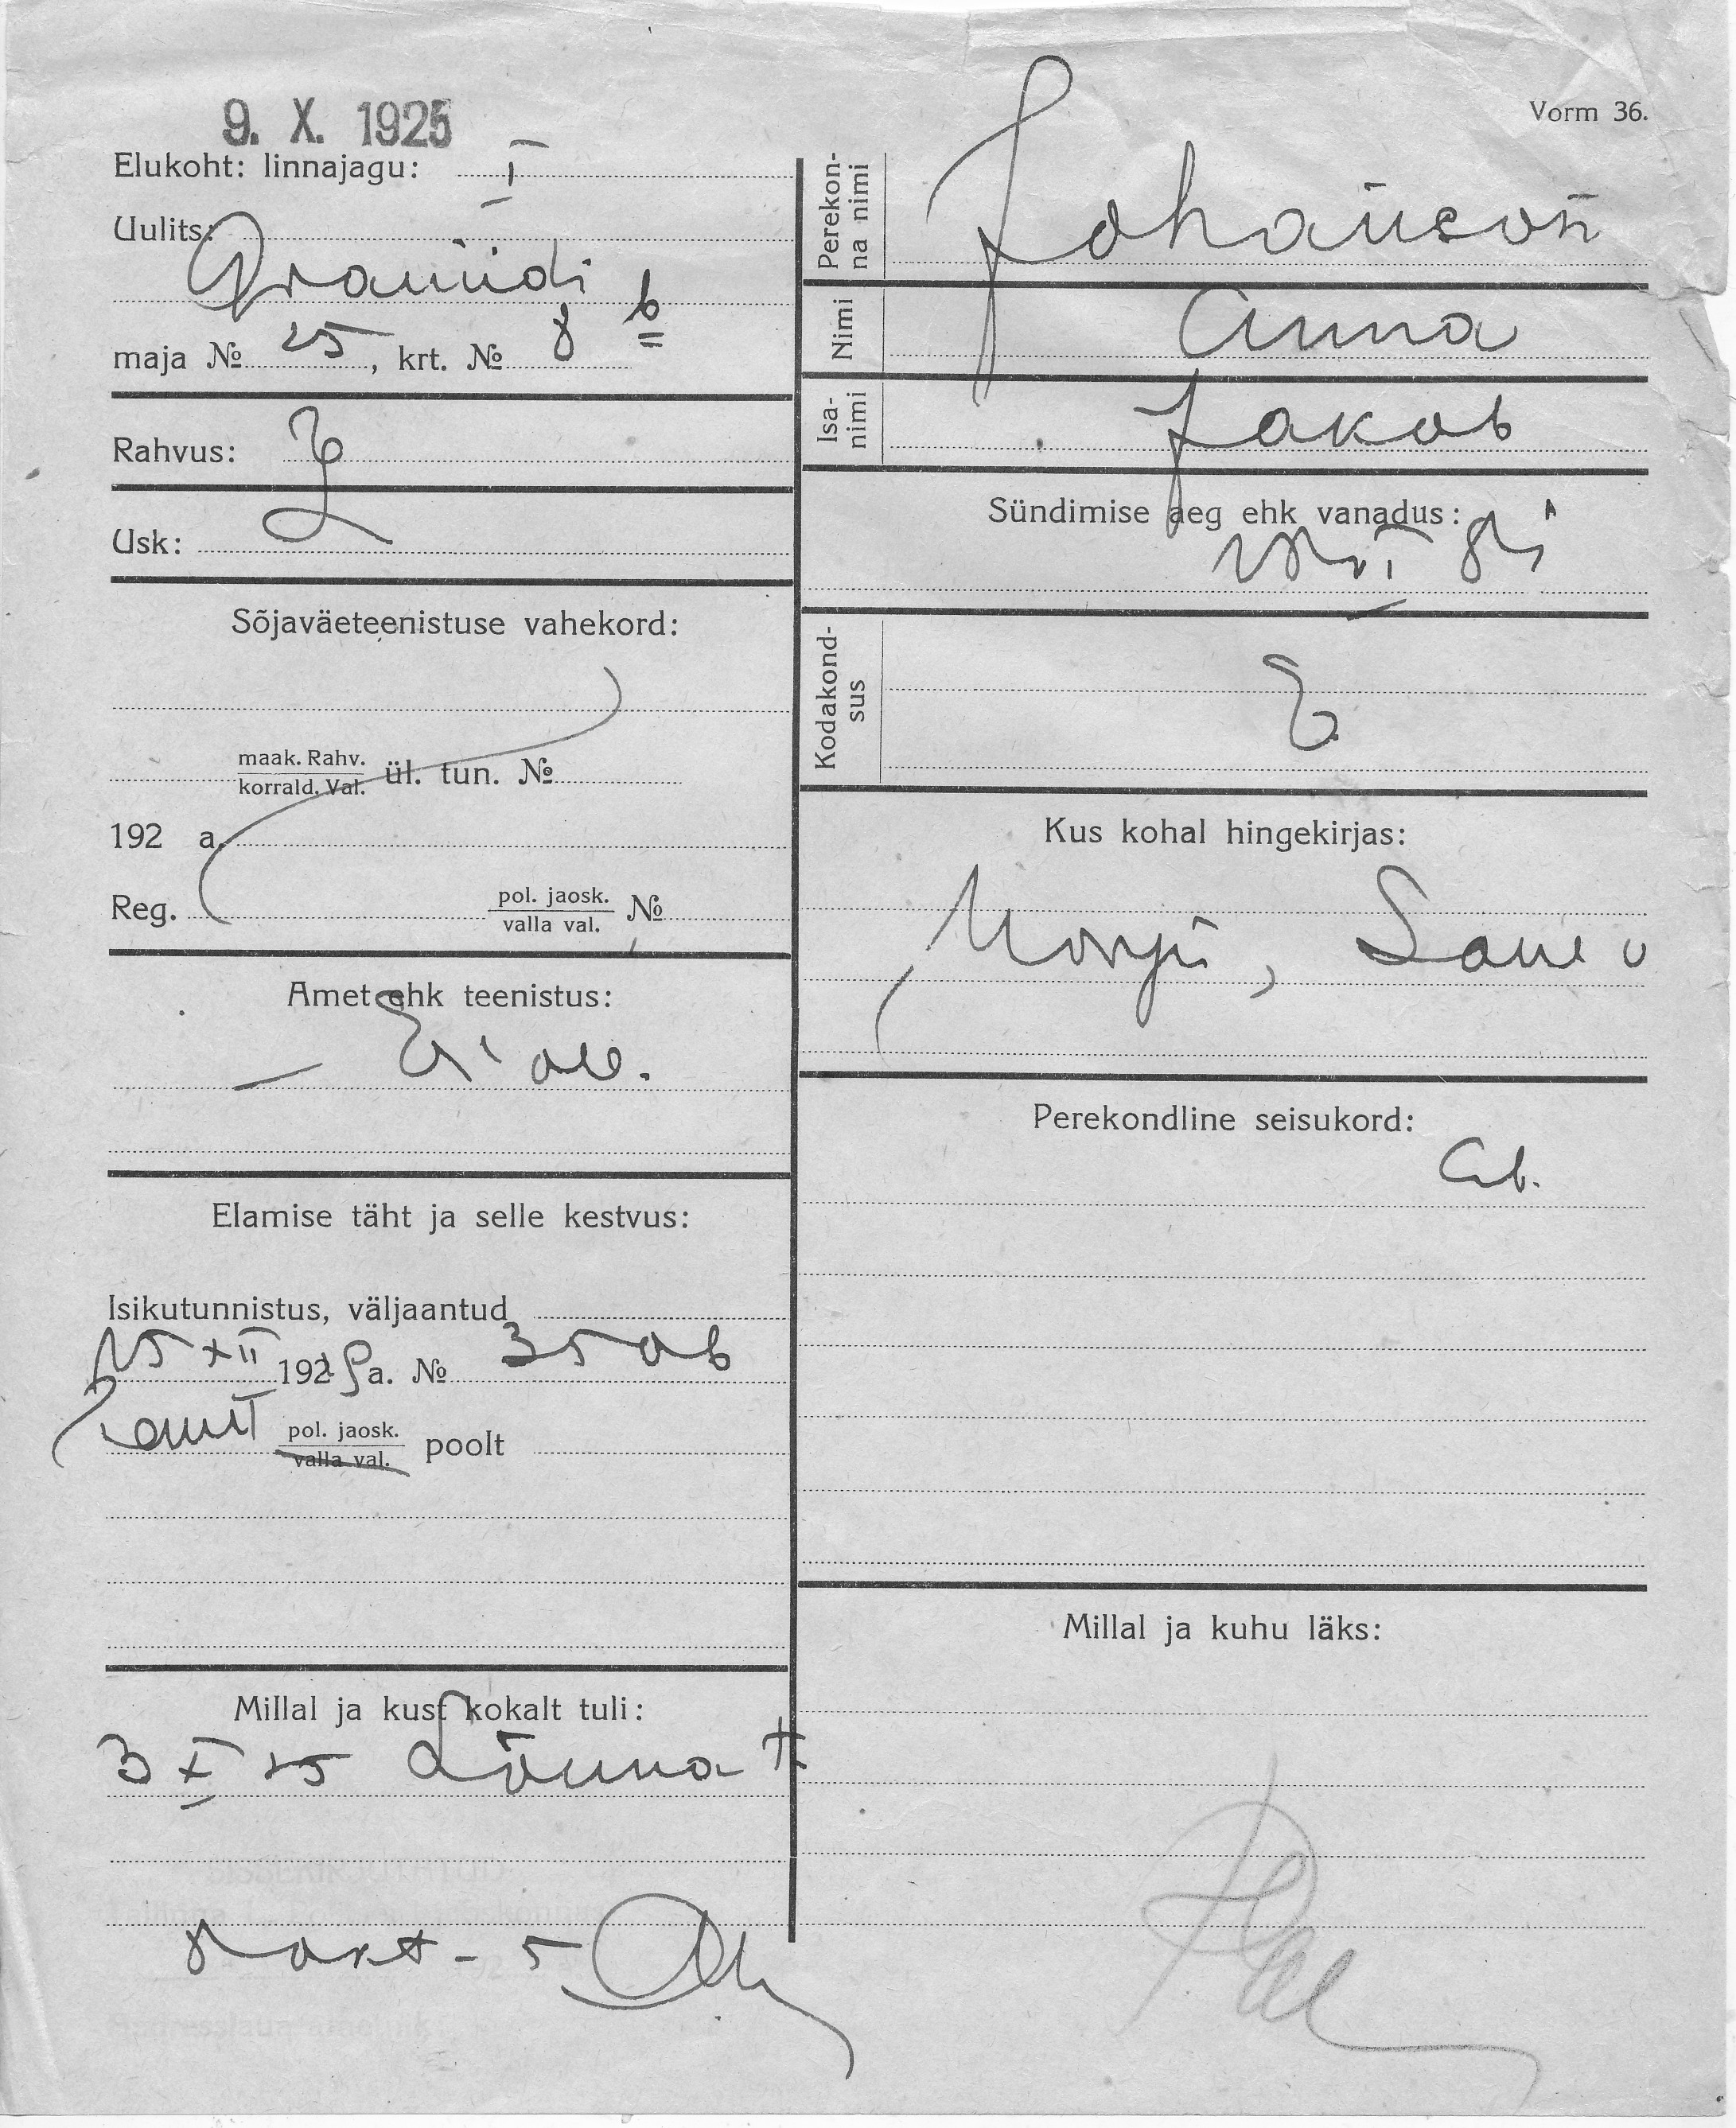 9. X. 1925
Vorm 36.
Elukoht: linnajagu: I
Uulits:
Graniidi
maja № 25, krt. № 8 b
Rahvus: E
Usk: L
Sõjaväeteenistuse vahekord:
maak. Rahv.
korrald. Val. ül. tun. №
192 a.
Reg. pol. jaosk.
valla val. №
Amet ehk teenistus:
Elamise täht ja selle kestvus:
Isikutunnistus, väljaantud
15 XII 192 a. №
pol. jaosk.
valla val. poolt
Millal ja kust kokalt tuli:
3 X 25 Lõuna
8 okt -
Perekon-
na nimi Johanson
Nimi Anna
Isa-
nimi Jakob
Sündimise aeg ehk vanadus:
Kodakond-
sus E.
Kus kohal hingekirjas:
Perekondline seisukord:
Ab.
Millal ja kuhu läks: